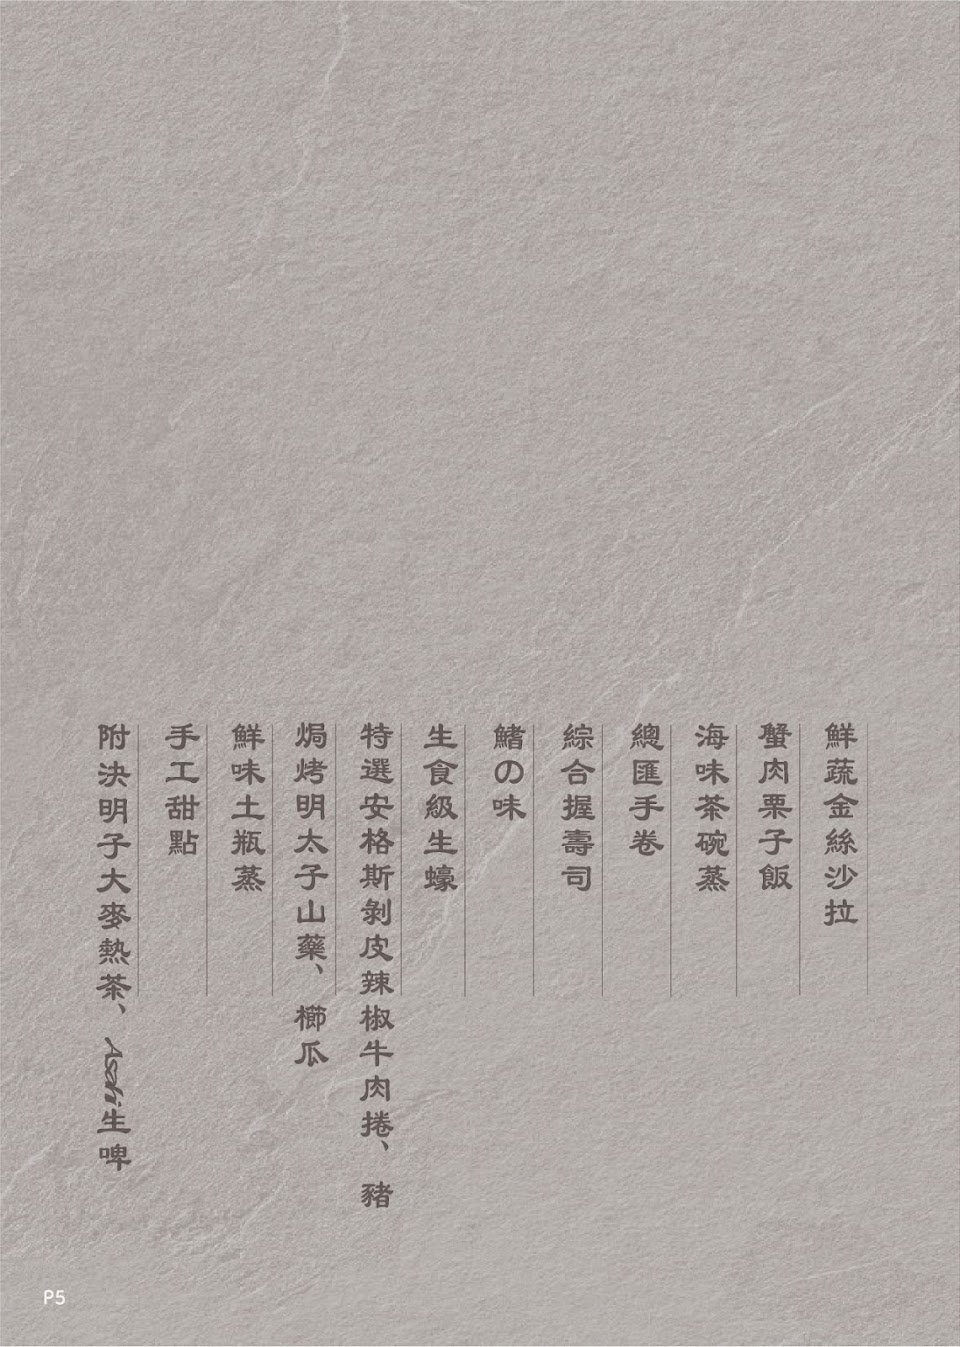 鮮蔬金絲沙拉
蟹肉栗子飯
海味茶碗蒸
總匯手卷
綜合握壽司
鰭の味
生食級生蠔
特選安格斯剝皮辣椒牛肉捲、豬
焗烤明太子山藥、櫛瓜
鮮味土瓶蒸
手工甜點
附決明子大麥熱茶、Asahi生啤
P5